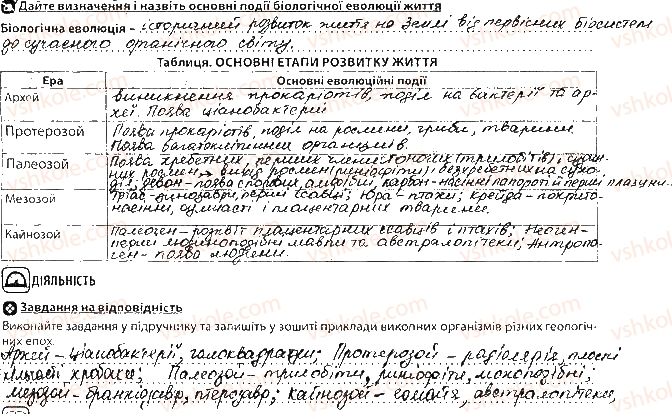 Дайте визначення і назвіть основні події біологічної еволюції життя
Біологічна еволюція – історичний розвиток життя на Землі від первісних біосистем
до сучасного органічного світу.
Таблиця. ОСНОВНІ ЕТАПИ РОЗВИТКУ ЖИТТЯ
Ера Основні еволюційні події
Архей виникнення прокаріотів, поділ на бактерії та ар-
хеї. Поява ціанобактерій
Протерозой Поява прокаріотів, поділ на рослини, гриби, тварини.
Поява багатоклітинних організмів.
Палеозой Поява хребетних, перших членистоногих (трилобітів) і
них рослин → вихід рослин (риніофіти) і безхребетних на сухо-
девон – поява спорових, амфібій, карбон – насінні папороті й перші плазуни
Мезозой Тріас – динозаври, перші ссавці; Юра – птахи; Крейда – покрито-
насінні, сумчасті і плацентарних тварини.
Кайнозой Палеоген – розквіт плацентарних ссавців і птахів; Неоген –
перші людиноподібні мавпи та австралопітеки; Антропо-
ген – поява людини.
ДІЯЛЬНІСТЬ
Завдання на відповідність
Виконайте завдання у підручнику та запишіть у зошиті приклади викопних організмів різних геологіч-
них епох.
Архей – ціанобактерії, галоквадратум; Протерозой – радіолярія, плоскі
хробаки; Палеозой – трилобіти, риніофіти,
мезозой – птерозавр; кайнозой – австралопітек,
vshkole.com